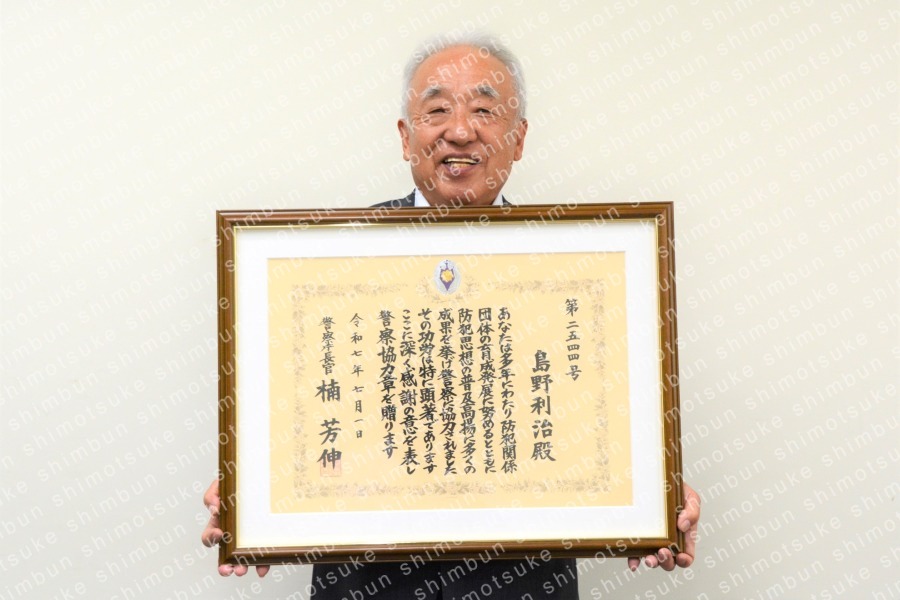 第二五四四号
島野利治殿
あなたは多年にわたり防犯関係
団体の育成発展に努めるとともに
防犯思想の普及高揚に多くの
成果を挙げ警察に協力されました
その功労は特に顕著であります
ここに深く感謝の意を表し
警察協力章を贈ります
令和七年七月一日
警察庁長官
楠芳伸
shimotsuke shimbun